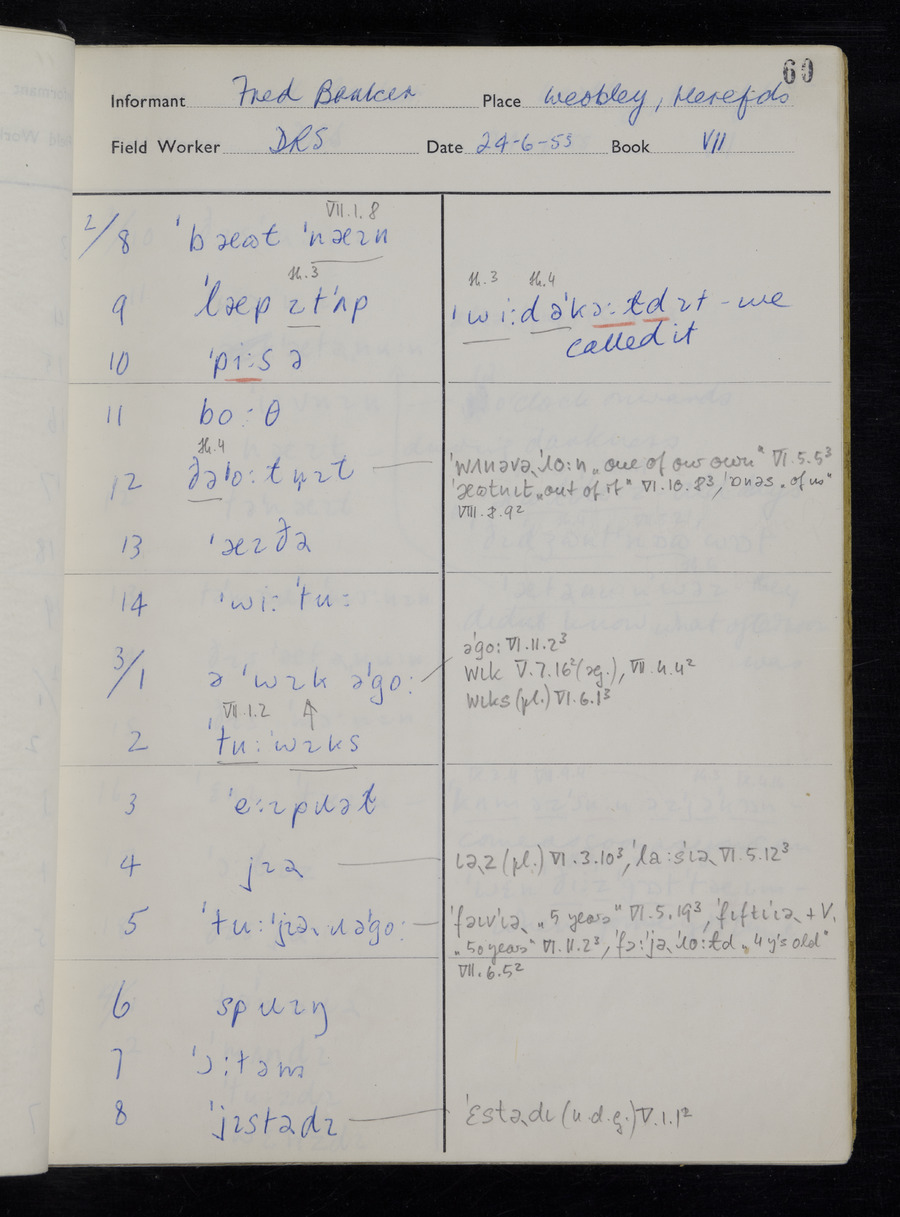 60
Informant Fred Banker Place Weobley, Herefds
Field Worker DRS Date 24-6-55 Book VII
VII.1.8
2/8 ˈbæʊt ˈnæɪn
H.3
9 ˈlæp ɪtˈʌp
H.3 H.4
ˈwiːd əˈkɔːɫd ɪt - we
called it
10 ˈpiːs ə
11 boːθ
H.4
12 ðəˈloːt
ˈwʌnəvəˌˈloːn „one of our own" VI.5.5³
ˈæʊtnɪt „out of it" VI.10.8³, ˈɒnəs „of us"
VIII.8.9²
13 ˈæɪðə
14 ˈwiː ˈtuː
3/1 ə ˈwɪk əˈgoː
əˈgoː VI.11.2³
wɪk V.7.16² (sg.), VII.4.4²
wɪks (pl.) VI.6.1³
VII.1.2
2 ˈtuː ˈwɪks
3
4 jɪə
ɪəz (pl.) VI.3.10³, ˈlaːsˈɪə VI.5.12³
5 ˈtuːˈjɪəɹəˈgoː
ˈfəɪvˈɪə „5 years" VI.5.19³, ˈfɪftɪˈɪə + V.
„50 years" VI.11.2³, ˈfɔːˈjəˌˈloːɫd „4 y's old"
VII.6.5²
6 spɹɪŋ
7 ˈɔːtəm
8 ˈjɪstədɪ
ˈɛstədɪ (n.d.g.) V.1.1²